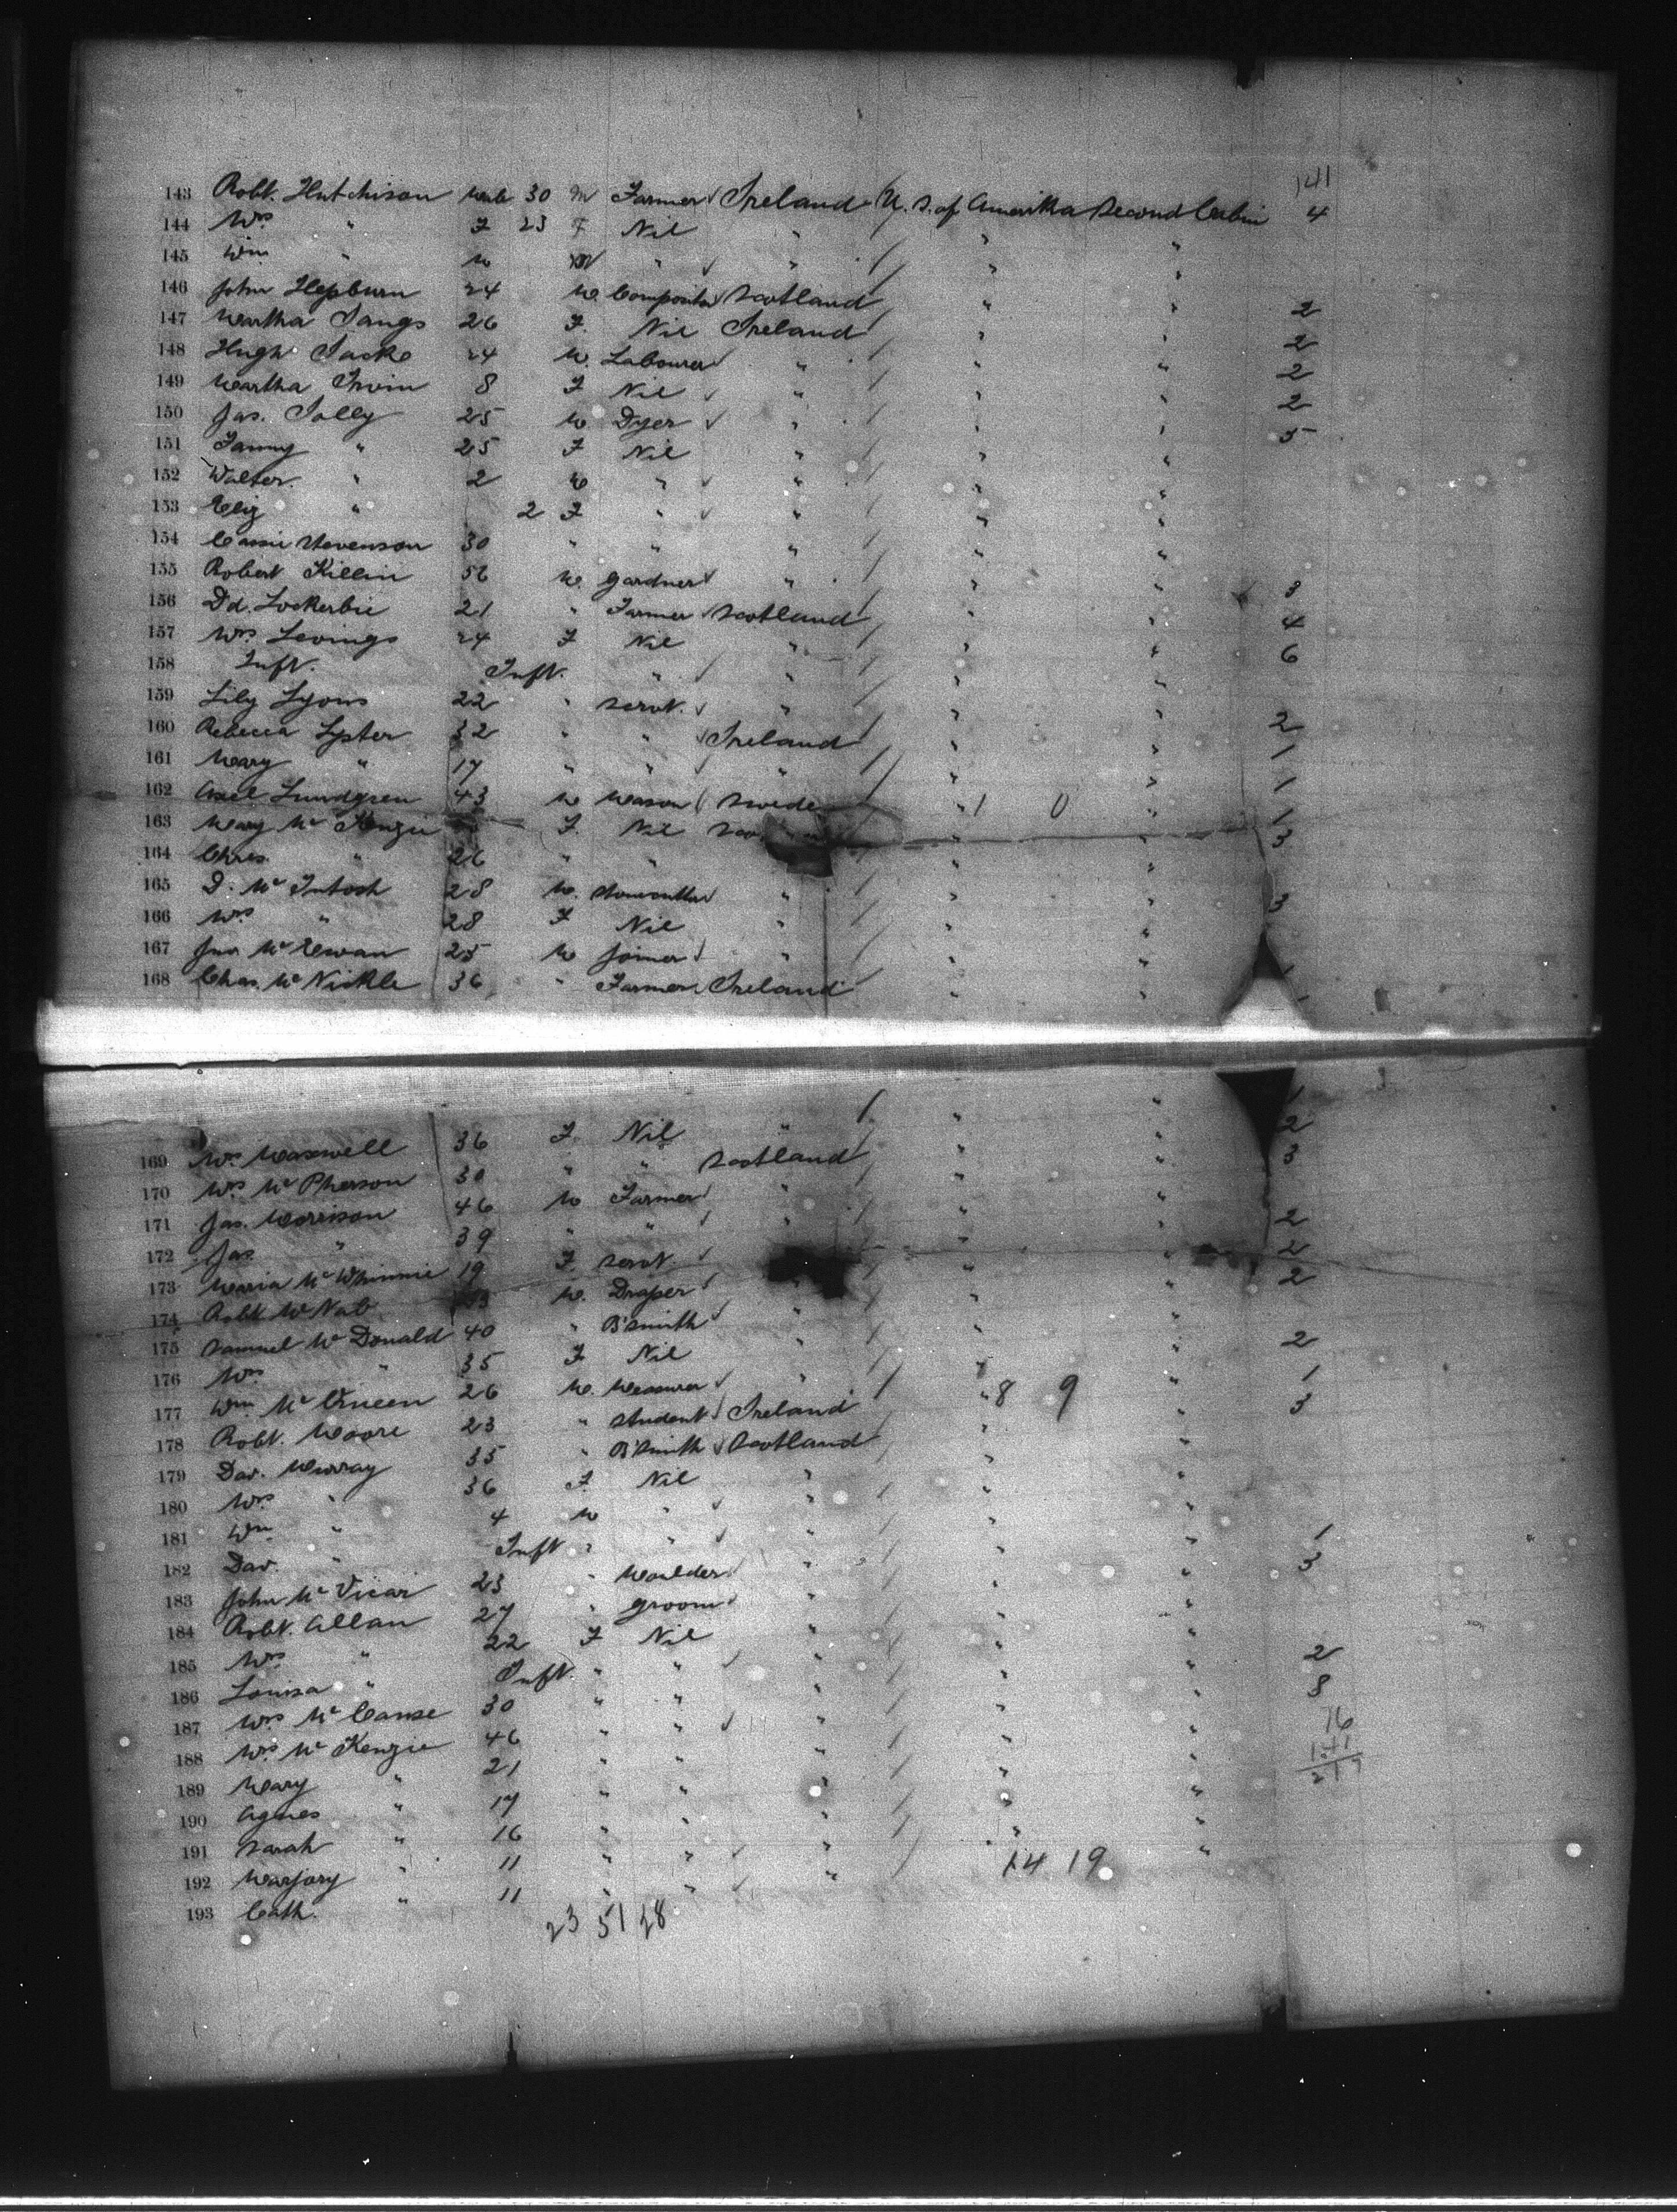 141
143 Robt. Hutchison Male 30 M Farmer Ireland U.S. of Amerika Second Cabin 4
144 Mrs " F 23 F Nil "  " "
145 Wm " M " " " "
146 John Hepburn 24 M Compositor Scotland " " 2
147 Martha Jangs 26 F. Nil Ireland " " 2
148 Hugh 24 M. Labourer " " " 2
149 Martha Irvin 8 F Nil " " " 2
150 Jas. Jolly 25 M Dyer " " " 5
151 Fanny " 25 F Nil " " "
152 Walter " 2 M " " " "
153 Eliz " 2 F " " " "
154 Cassie Stevenson 30 " " " " "
155 Robert Killin 56 M. Gardner " " " 3
156 Dd. Lockerbie 21 " Farmer Scotland " " 4
157 Mrs Levings 24 F Nil " " " 6
158 Inft. Inft. " " " "
159 Lily Lyons 22 " Servt. " " " 2
160 Rebecca Lyster 32 " " Ireland " " 1
161 Mary " 17 " " " " " 1
162 Axel Lundgren 43 M Mason Swede " 1 0 " 1
163 Mary McKenzie F. Nil " " 3
164 Chres. " 26 " " " "
165 D. McIntosh 28 M. " " " 3
166 Mrs " 28 F Nil " " "
167 Jno McEwan 25 M Joiner " " " 1
168 Chas. McNickle 36 " Farmer Ireland " " 1
169 Mrs Maxwell 36 F. Nil " " " 2
170 Mrs McPherson 30 " " Scotland " " 3
171 Jas. Morrison 46 M Farmer " " "
172 Jas. " 39 " " " " " 2
173 Maria McWhinnie 19 F. Servt. " " 2
174 Robt McNab M. Draper " " 2
175 Samuel McDonald 40 " B'smith " " "
176 Mrs " 35 F Nil " " " 2
177 Wm McQueen 26 M. Measurer " " 8 9 " 1
178 Robt. Moore 23 " Student Ireland " " 3
179 Dav. Murray 35 " B'smith Scotland " "
180 Mrs " 36 F. Nil " " "
181 Wm " 4 M " " " "
182 Dav. " Inft " " " " " 1
183 John McVicar 23 " Moulder " " " 3
184 Robt. Allan 27 " Groom " " "
185 Mrs " 22 F Nil " " " 2
186 Louisa " Inft. " " " " " 8
187 Mrs 30 " " " " "
188 Mrs McKenzie 46 " " " " "
189 Mary " 21 " " " " "
190 Agnes " 17 " " " " "
191 Sarah " 16 " " " " "
192 Marjory " 11 " " " 14 19 "
193 Cath. " 11 " "
23 51 28
16
141
217